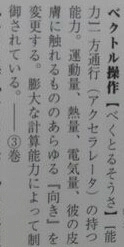 ベクトル操作【べくとるそうさ】[能
力]一方通行（アクセラレータ）の持つ
能力。運動量、熱量、電気量、彼の皮
膚に触れるもののあらゆる『向き』を
変更する。膨大な計算能力によって制
御されている。――③巻